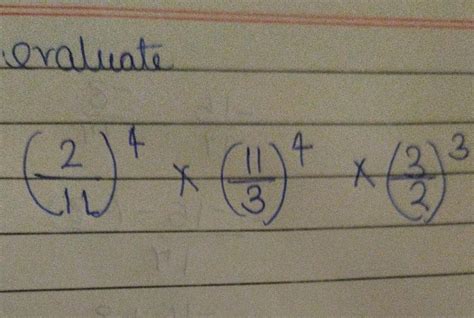 evaluate
(2/11)^4 × (11/3)^4 × (3/2)^3